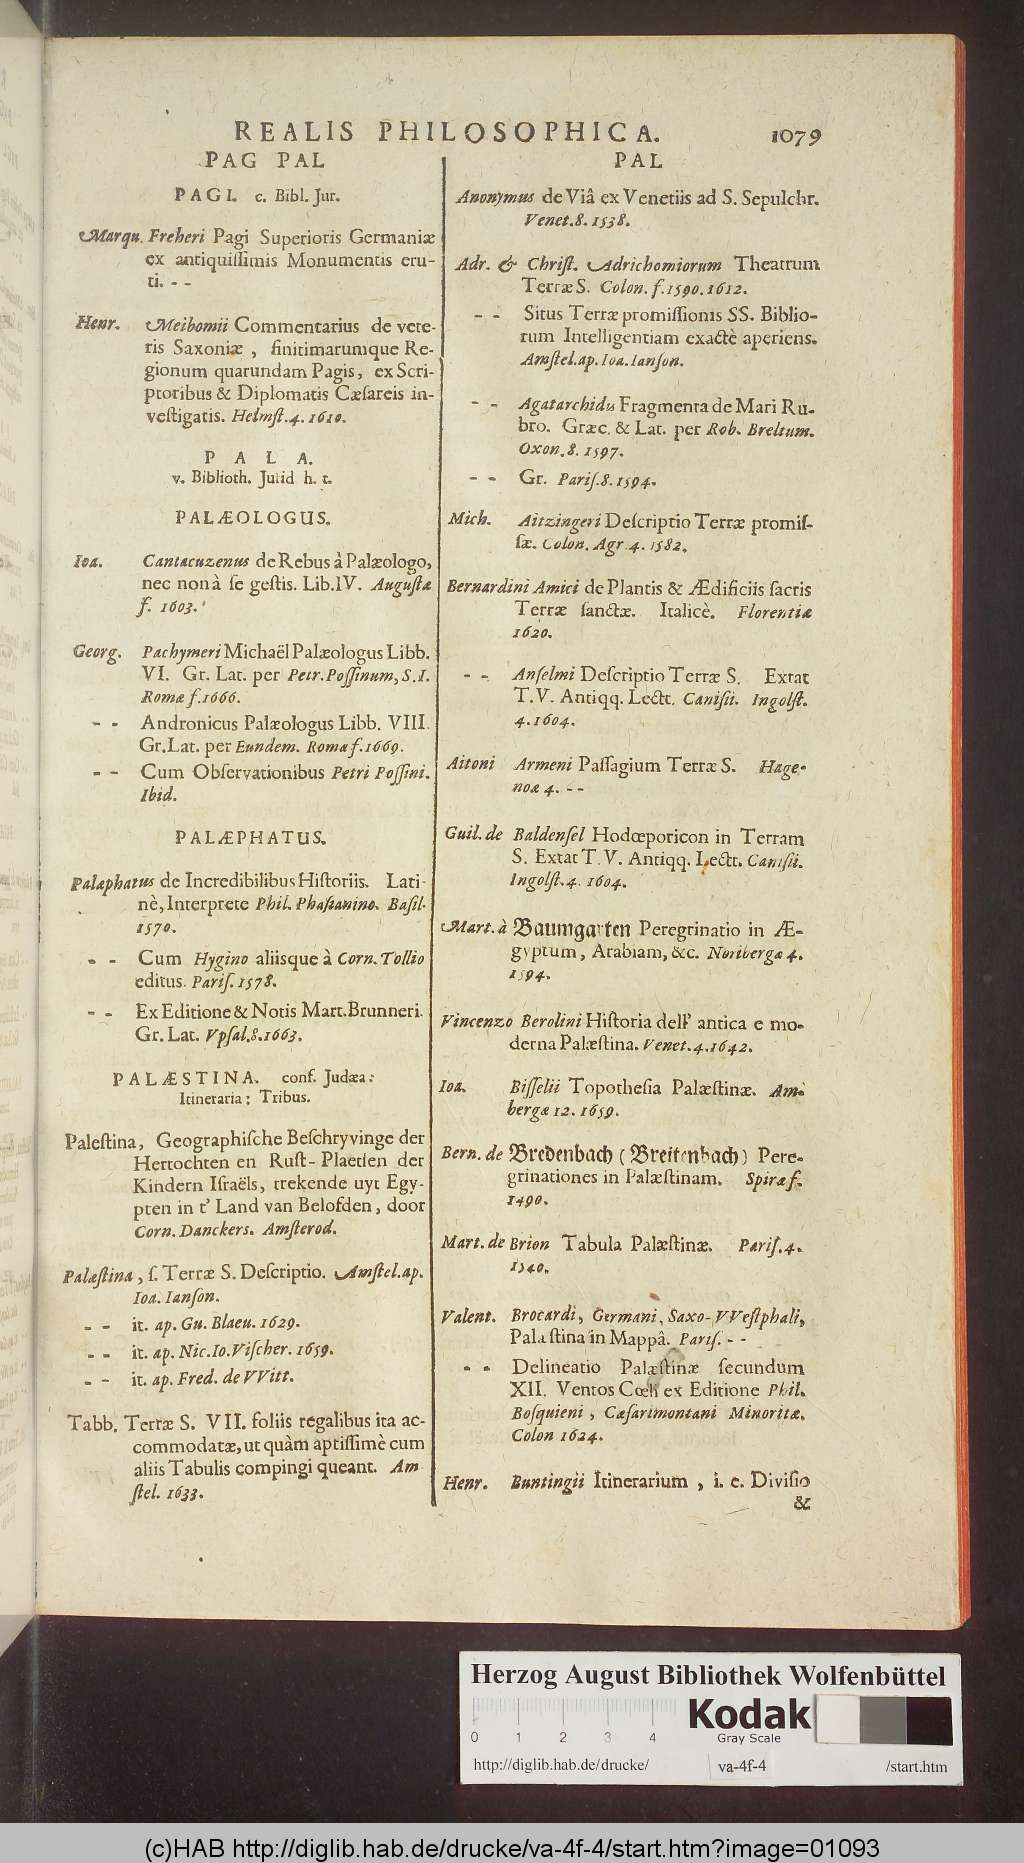 REALIS PHILOSOPHICA. 1079
PAG PAL
PAGI. c. Bibl. Jur.
Marqu. Freheri Pagi Superioris Germaniæ
ex antiquissimis Monumentis eru-
ti. - -
Henr. Meibomii Commentarius de vete-
ris Saxoniæ, finitimarumque Re-
gionum quarundam Pagis, ex Scri-
ptoribus & Diplomatis Cæsareis in-
vestigatis. Helmst. 4. 1610.
PALA.
v. Biblioth. Jurid h. t.
PALÆOLOGUS.
Ioa. Cantacuzenus de Rebus à Palæologo,
nec non à se gestis. Lib. IV. Augustæ
f. 1603.
Georg. Pachymeri Michaël Palæologus Libb.
VI. Gr. Lat. per Petr. Possinum, S. I.
Romæ f. 1666.
- - Andronicus Palæologus Libb. VIII.
Gr. Lat. per Eundem. Romæ f. 1669.
- - Cum Observationibus Petri Possini.
Ibid.
PALÆPHATUS.
Palæphatus de Incredibilibus Historiis. Lati-
nè, Interprete Phil. Phasianino. Basil.
1570.
- - Cum Hygino aliisque à Corn. Tollio
editus. Paris. 1578.
- - Ex Editione & Notis Mart. Brunneri.
Gr. Lat. Vpsal. 8. 1663.
PALÆSTINA. conf. Judæa:
Itineraria; Tribus.
Palestina, Geographische Beschryvinge der
Hertochten en Rust-Plaetsen der
Kindern Israëls, trekende uyt Egy-
pten in t' Land van Belofden, door
Corn. Danckers. Amsterod.
Palæstina, s. Terræ S. Descriptio. Amstel. ap.
Ioa. Ianson.
- - it. ap. Gu. Blaeu. 1629.
- - it. ap. Nic. Io. Vischer. 1659.
- - it. ap. Fred. de VVitt.
Tabb. Terræ S. VII. foliis regalibus ita ac-
commodatæ, ut quàm aptissimè cum
aliis Tabulis compingi queant. Am
stel. 1633.
PAL
Anonymus de Viâ ex Venetiis ad S. Sepulchr.
Venet. 8. 1538.
Adr. & Christ. Adrichomiorum Theatrum
Terræ S. Colon. f. 1590. 1612.
- - Situs Terræ promissionis SS. Biblio-
rum Intelligentiam exactè aperiens.
Amstel. ap. Ioa. Ianson.
- - Agatarchidis Fragmenta de Mari Ru-
bro. Græc. & Lat. per Rob. Breltum.
Oxon. 8. 1597.
- - Gr. Paris. 8. 1594.
Mich. Aitzingeri Descriptio Terræ promis-
sæ. Colon. Agr. 4. 1582.
Bernardini Amici de Plantis & Ædificiis sacris
Terræ sanctæ. Italicè. Florentiæ
1620.
- - Anselmi Descriptio Terræ S. Extat
T. V. Antiqq. Lectt. Canisii. Ingolst.
4. 1604.
Aitoni Armeni Passagium Terræ S. Hage-
noæ 4. - -
Guil. de Baldensel Hodœporicon in Terram
S. Extat T. V. Antiqq. Lectt. Canisii.
Ingolst. 4. 1604.
Mart. à Baumgarten Peregrinatio in Æ-
gyptum, Arabiam, &c. Noribergæ 4.
1594.
Vincenzo Berolini Historia dell' antica e mo-
derna Palæstina. Venet. 4. 1642.
Ioa. Bisselii Topothesia Palæstinæ. Am-
bergæ 12. 1659.
Bern. de Bredenbach (Breitenbach) Pere-
grinationes in Palæstinam. Spiræ f.
1490.
Mart. de Brion Tabula Palæstinæ. Paris. 4.
1540.
Valent. Brocardi, Germani, Saxo-VVestphali,
Palæstina in Mappâ. Paris. - -
- - Delineatio Palæstinæ secundum
XII. Ventos Cœli ex Editione Phil.
Bosquieni, Cæsarimontani Minoritæ.
Colon 1624.
Henr. Buntingii Itinerarium, i. e. Divisio
&
Herzog August Bibliothek Wolfenbüttel
0 1 2 3 4
Kodak
Gray Scale
http://diglib.hab.de/drucke/ va-4f-4 /start.htm
(c)HAB http://diglib.hab.de/drucke/va-4f-4/start.htm?image=01093